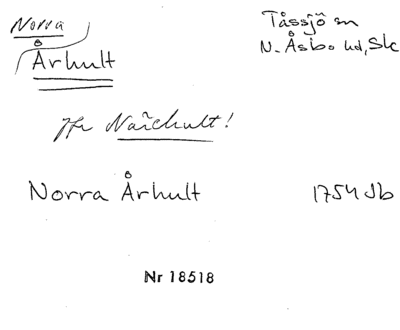 Norra
Århult
Tåssjö sn
N. Åsbo hd, Sk
Jfr Narchult!
Norra Århult 1754 Jb
Nr 18518